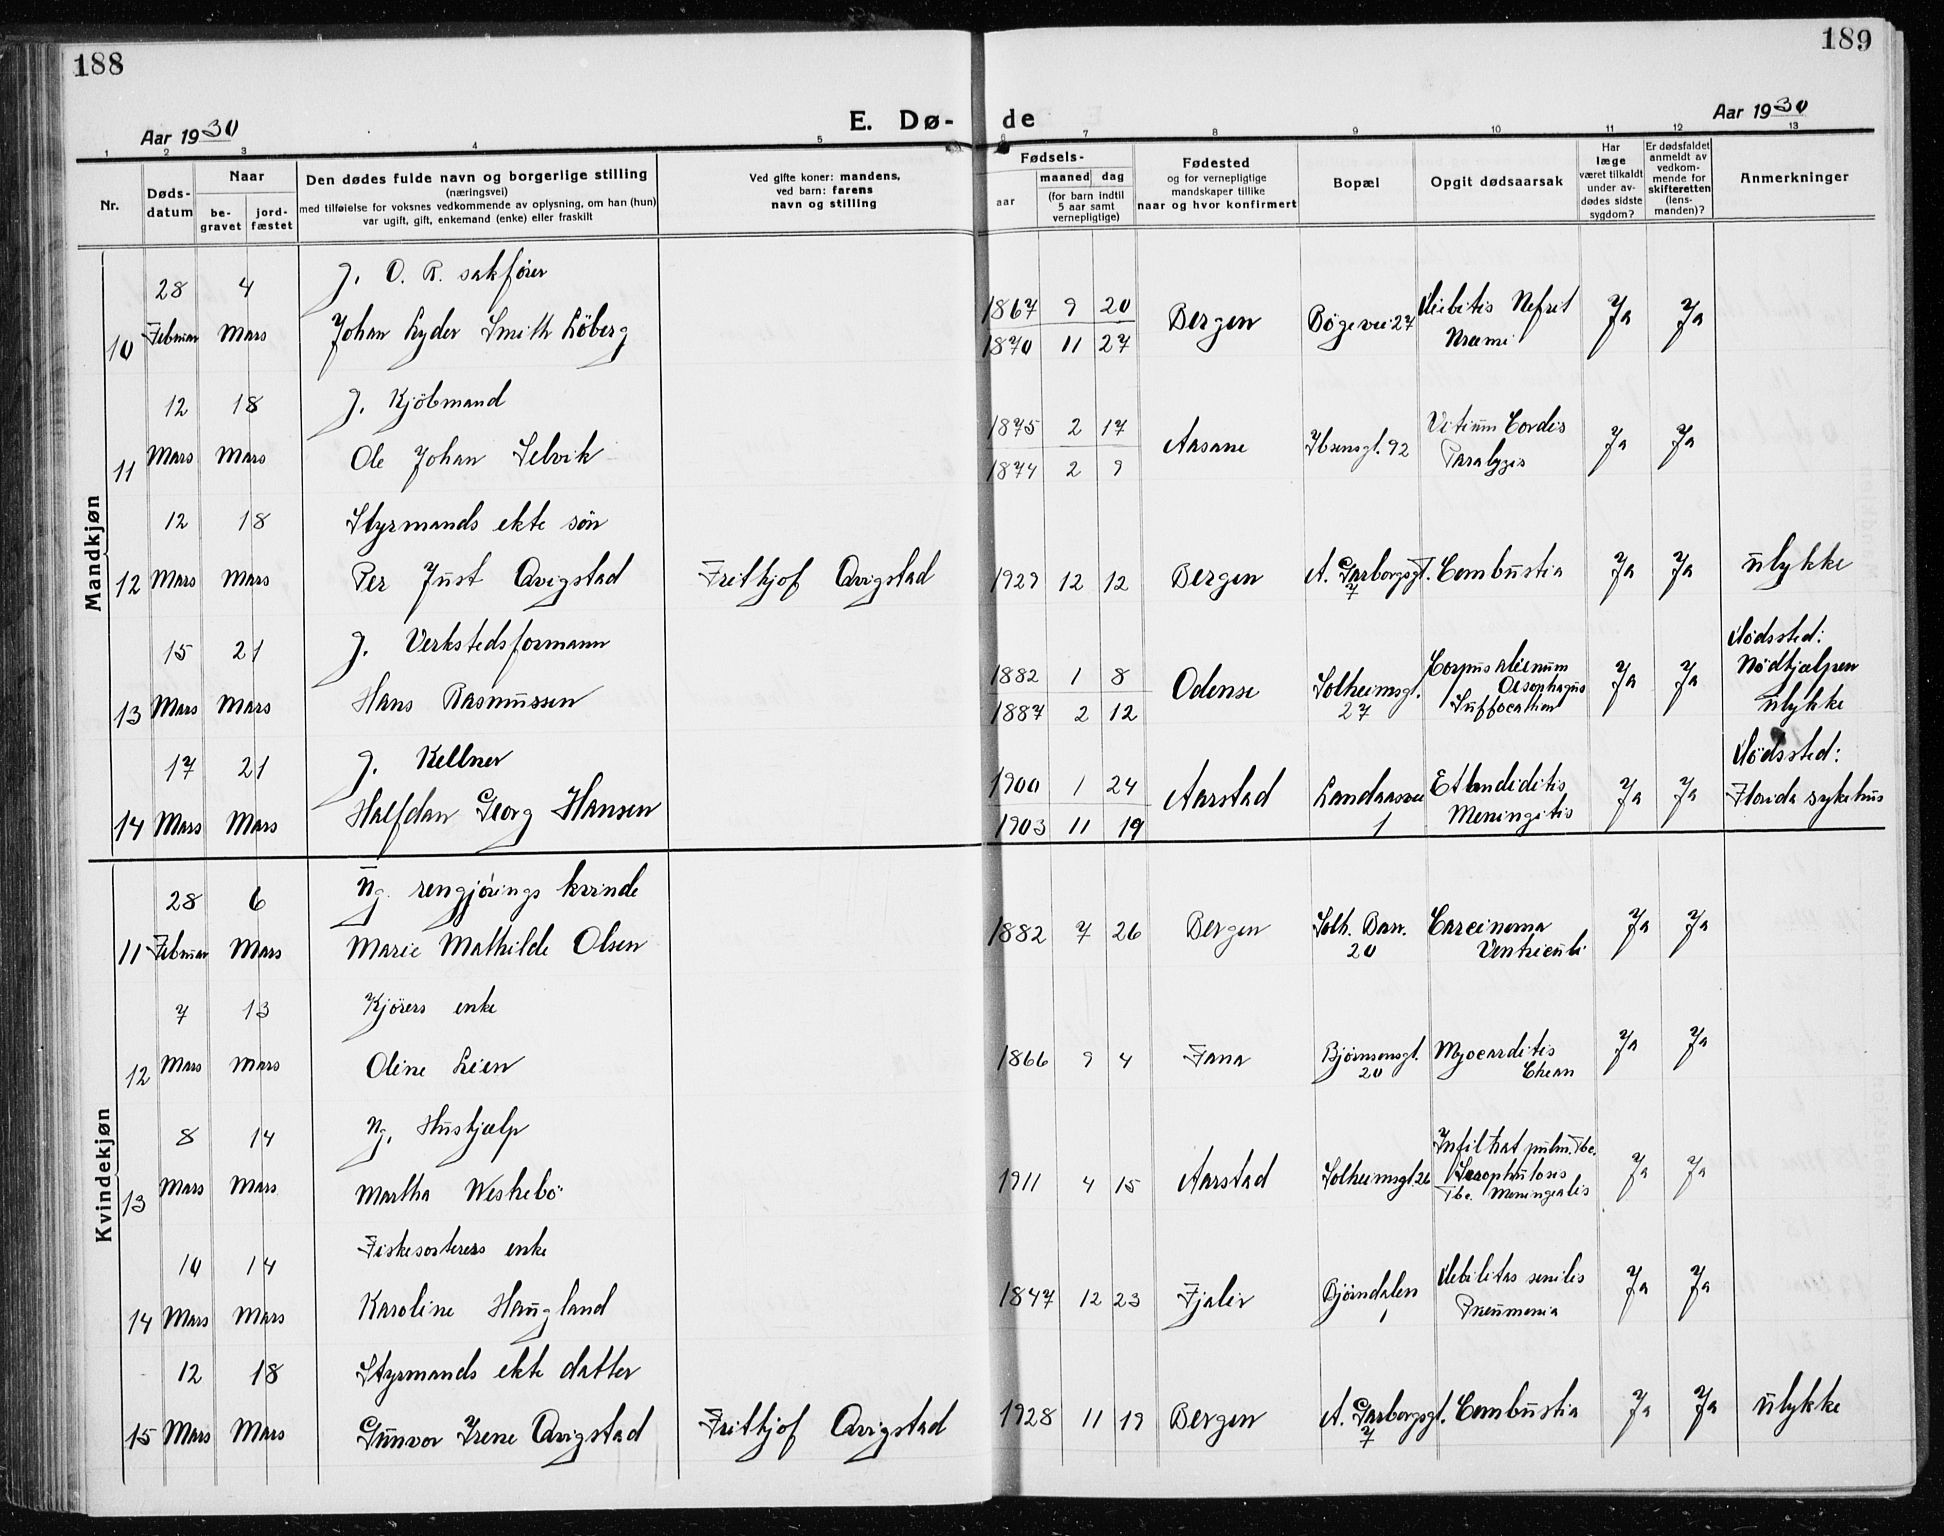 188
189
Aar 1930
E. Dø-
de
Aar 1930
1 2 3 4 5 6 7 8 9 10 11 12 13
Nr.
Døds-
datum
Naar
be-
gravet
jord-
fæstet
Den dødes fulde navn og borgerlige stilling
(næringsvei)
med tilføielse for voksnes vedkommende av oplysning, om han (hun)
var ugift, gift, enkemand (enke) eller fraskilt
Ved gifte koner: mandens,
ved barn: farens
navn og stilling
Fødsels-
aar
maaned dag
(for barn indtil
5 aar samt
vernepligtige)
Fødested
og for vernepligtige
mandskaper tillike
naar og hvor konfirmert
Bopæl
Opgit dødsaarsak
Har
læge
været tilkaldt
under av-
dødes sidste
sygdom?
Er dødsfaldet
anmeldt av
vedkom-
mende for
skifteretten
(lens-
manden)?
Anmerkninger
Mandkjøn
28 4 g. O. R. sakfører
1867 9 20
10 Februar Mars Johan Lyder Smith Löberg Bergen Bögevei 27 Diebitis Nefrit Ja Ja
1870 11 27 Uræmi
12 18 g. Kjöbmand
1875 2 17 Vitium Cordis
11 Mars Mars Ole Johan Selvik Aasane Ibsensgt. 92 Ja Ja
1874 2 9 Paralyzis
12 18 Styrmands ekte sön
12 Mars Mars Per Just Qvigstad Frithjof Qvigstad 1929 12 12 Bergen A. Garborgsgt. Combustia Ja Ja ulykke
7
15 21 g. Verkstedsformann Dødssted:
1882 1 8 Corpus alienum Nödhjælpen
13 Mars Mars Hans Rasmussen Odense Solheimsgt. Oesophagus Ja Ja
1887 2 12 27 Suffocation ulykke
17 21 g. Kellner Dødssted:
1900 1 24 Landaasvei
14 Mars Mars Halfdan Georg Hansen Aarstad Ja Ja Florida sykehus
1903 11 19 1 Meningitis
Kvindekjøn
28 6 Ug. rengjörings kvinde
11 Februar Mars Marie Mathilde Olsen 1882 7 26 Bergen Solh. Bar. Carcinoma Ja Ja
20 Ventriculi
7 13 Kjørers enke
12 Mars Mars Oline Lien 1866 9 4 Fana Bjørnsonsgt. Myocarditis Ja Ja
20
8 14 Ug. Hushjælp
Infiltrat pulm. Tbc.
13 Mars Mars Martha 1911 4 15 Aarstad Solheimsgt. 26 Scrophulosis Ja Ja
Tbc. Meningealis
10 14 Fiskesorterers enke
14 Mars Mars Karoline Haugland 1847 12 23 Fjaler Bjørndalen Debilitas senilis Ja Ja
1 Pneumonia
12 18 Styrmands ekte datter
15 Mars Mars Gunvor Irene Qvigstad Frithjof Qvigstad 1928 11 19 Bergen A. Garborgsgt. Combustia Ja Ja ulykke
7